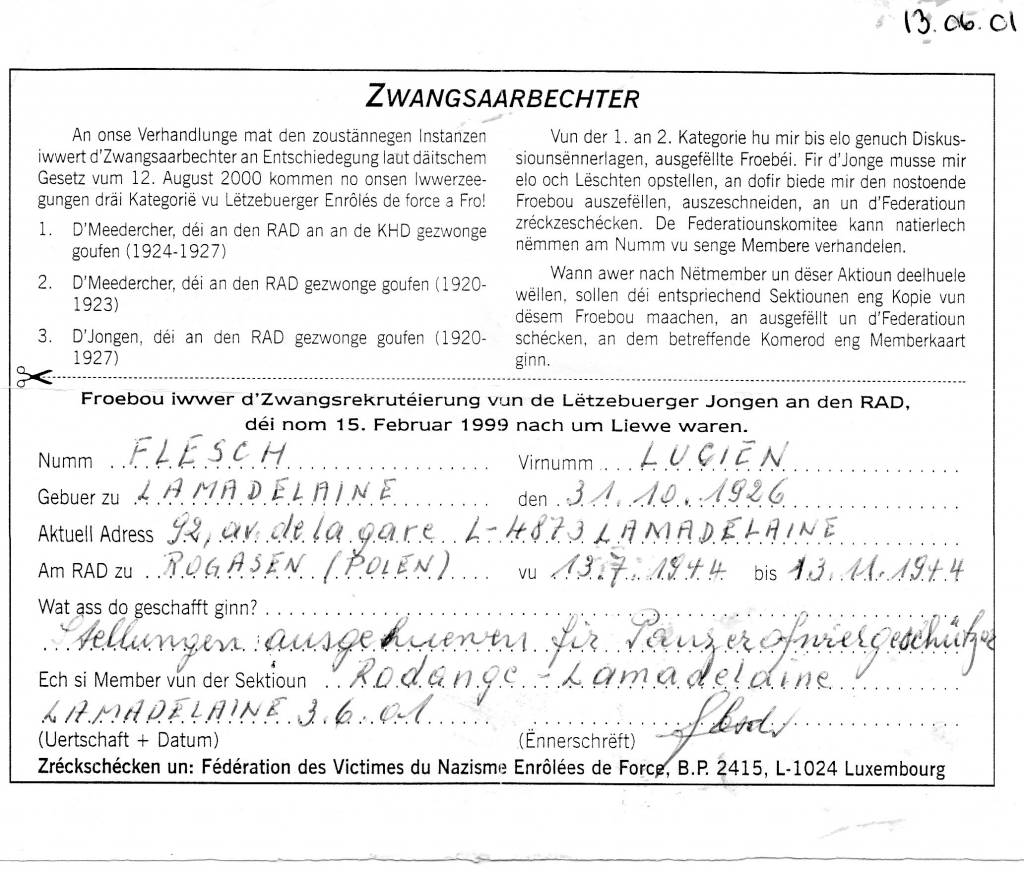 13.06.01
ZWANGSAARBECHTER
An onse Verhandlunge mat den zoustännegen Instanzen
iwwert d'Zwangsaarbechter an Entschiedegung laut däitschem
Gesetz vum 12. August 2000 kommen no onsen Iwwerzee-
gungen dräi Kategorië vu Lëtzebuerger Enrôlés de force a Fro!
1. D'Meedercher, déi an den RAD an an de KHD gezwonge
goufen (1924-1927)
2. D'Meedercher, déi an den RAD gezwonge goufen (1920-
1923)
3. D'Jongen, déi an den RAD gezwonge goufen (1920-
1927)
Vun der 1. an 2. Kategorie hu mir bis elo genuch Diskus-
siounsënnerlagen, ausgefëllte Froebéi. Fir d'Jonge musse mir
elo och Lëschten opstellen, an dofir biede mir den nostoende
Froebou auszefëllen, auszeschneiden, an un d'Federatioun
zréckzeschécken. De Federatiounskomitee kann natierlech
nëmmen am Numm vu senge Membere verhandelen.
Wann awer nach Nëtmember un dëser Aktioun deelhuele
wëllen, sollen déi entspriechend Sektiounen eng Kopie vun
dësem Froebou maachen, an ausgefëllt un d'Federatioun
schécken, an dem betreffende Komerod eng Memberkaart
ginn.
Froebou iwwer d'Zwangsrekrutéierung vun de Lëtzebuerger Jongen an den RAD,
déi nom 15. Februar 1999 nach um Liewe waren.
Numm FLESCH Virnumm LUCIEN
Gebuer zu LAMADELAINE den 31.10.1926
Aktuell Adress 92, av. de la gare L-4873 LAMADELAINE
Am RAD zu ROGASEN (POLEN) vu 13.7.1944 bis 13.11.1944
Wat ass do geschafft ginn?
Stellungen ausgehuewen fir Panzerofwiergeschützer
Ech si Member vun der Sektioun Rodange - Lamadelaine
LAMADELAINE 3.6.01
(Uertschaft + Datum) (Ënnerschrëft)
Zréckschécken un: Fédération des Victimes du Nazisme Enrôlées de Force, B.P. 2415, L-1024 Luxembourg